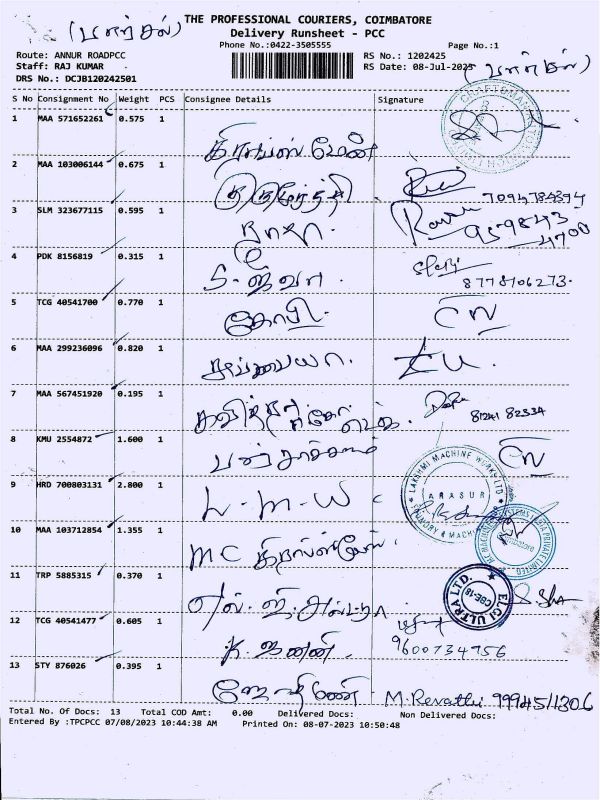 (பார்சல்)
THE PROFESSIONAL COURIERS, COIMBATORE
Delivery Runsheet - PCC
Phone No.:0422-3505555 Page No.:1
Route: ANNUR ROADPCC RS No.: 1202425
Staff: RAJ KUMAR RS Date: 08-Jul-2023 (பார்சல்)
DRS No.: DCJB120242501
S No Consignment No Weight PCS Consignee Details Signature
1 MAA 571652261 0.575 1
2 MAA 103006144 0.675 1
7094784394
3 SLM 323677115 0.595 1 ராஜா.
959843
4700
4 PDK 8156819 0.315 1 S. ஜீவா.
8778106273.
5 TCG 40541700 0.770 1 கோபி.
6 MAA 299236096 0.820 1 சுப்பையா.
7 MAA 567451920 0.195 1
81241 82334
8 KMU 2554872 1.600 1
9 HRD 700803131 2.800 1 L-M-W
LAKSHMI MACHINE WORKS LTD
ARASUR
10 MAA 103712854 1.355 1 MC
11 TRP 5885315 0.370 1
ELGI ULTRA LTD.
CBE-18
12 TCG 40541477 0.605 1 K. ஜனனி.
9600734956
13 STY 876026 0.395 1 M. Revathi 9994511306
Total No. Of Docs: 13 Total COD Amt: 0.00 Delivered Docs: Non Delivered Docs:
Entered By :TPCPCC 07/08/2023 10:44:38 AM Printed On: 08-07-2023 10:50:48